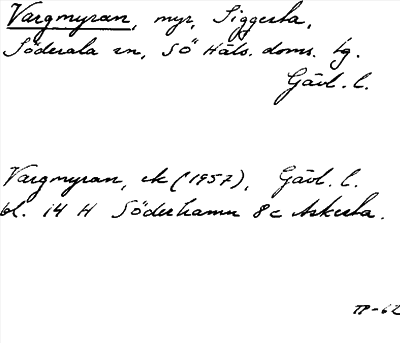 Vargmyran, myr, Siggesta,
Söderala sn, SÖ Häls. doms. tg.
Gävl. l.
Vargmyran, ek (1957), Gävl. l.
bl. 14 H Söderhamn 8c Askesta.
TP-62